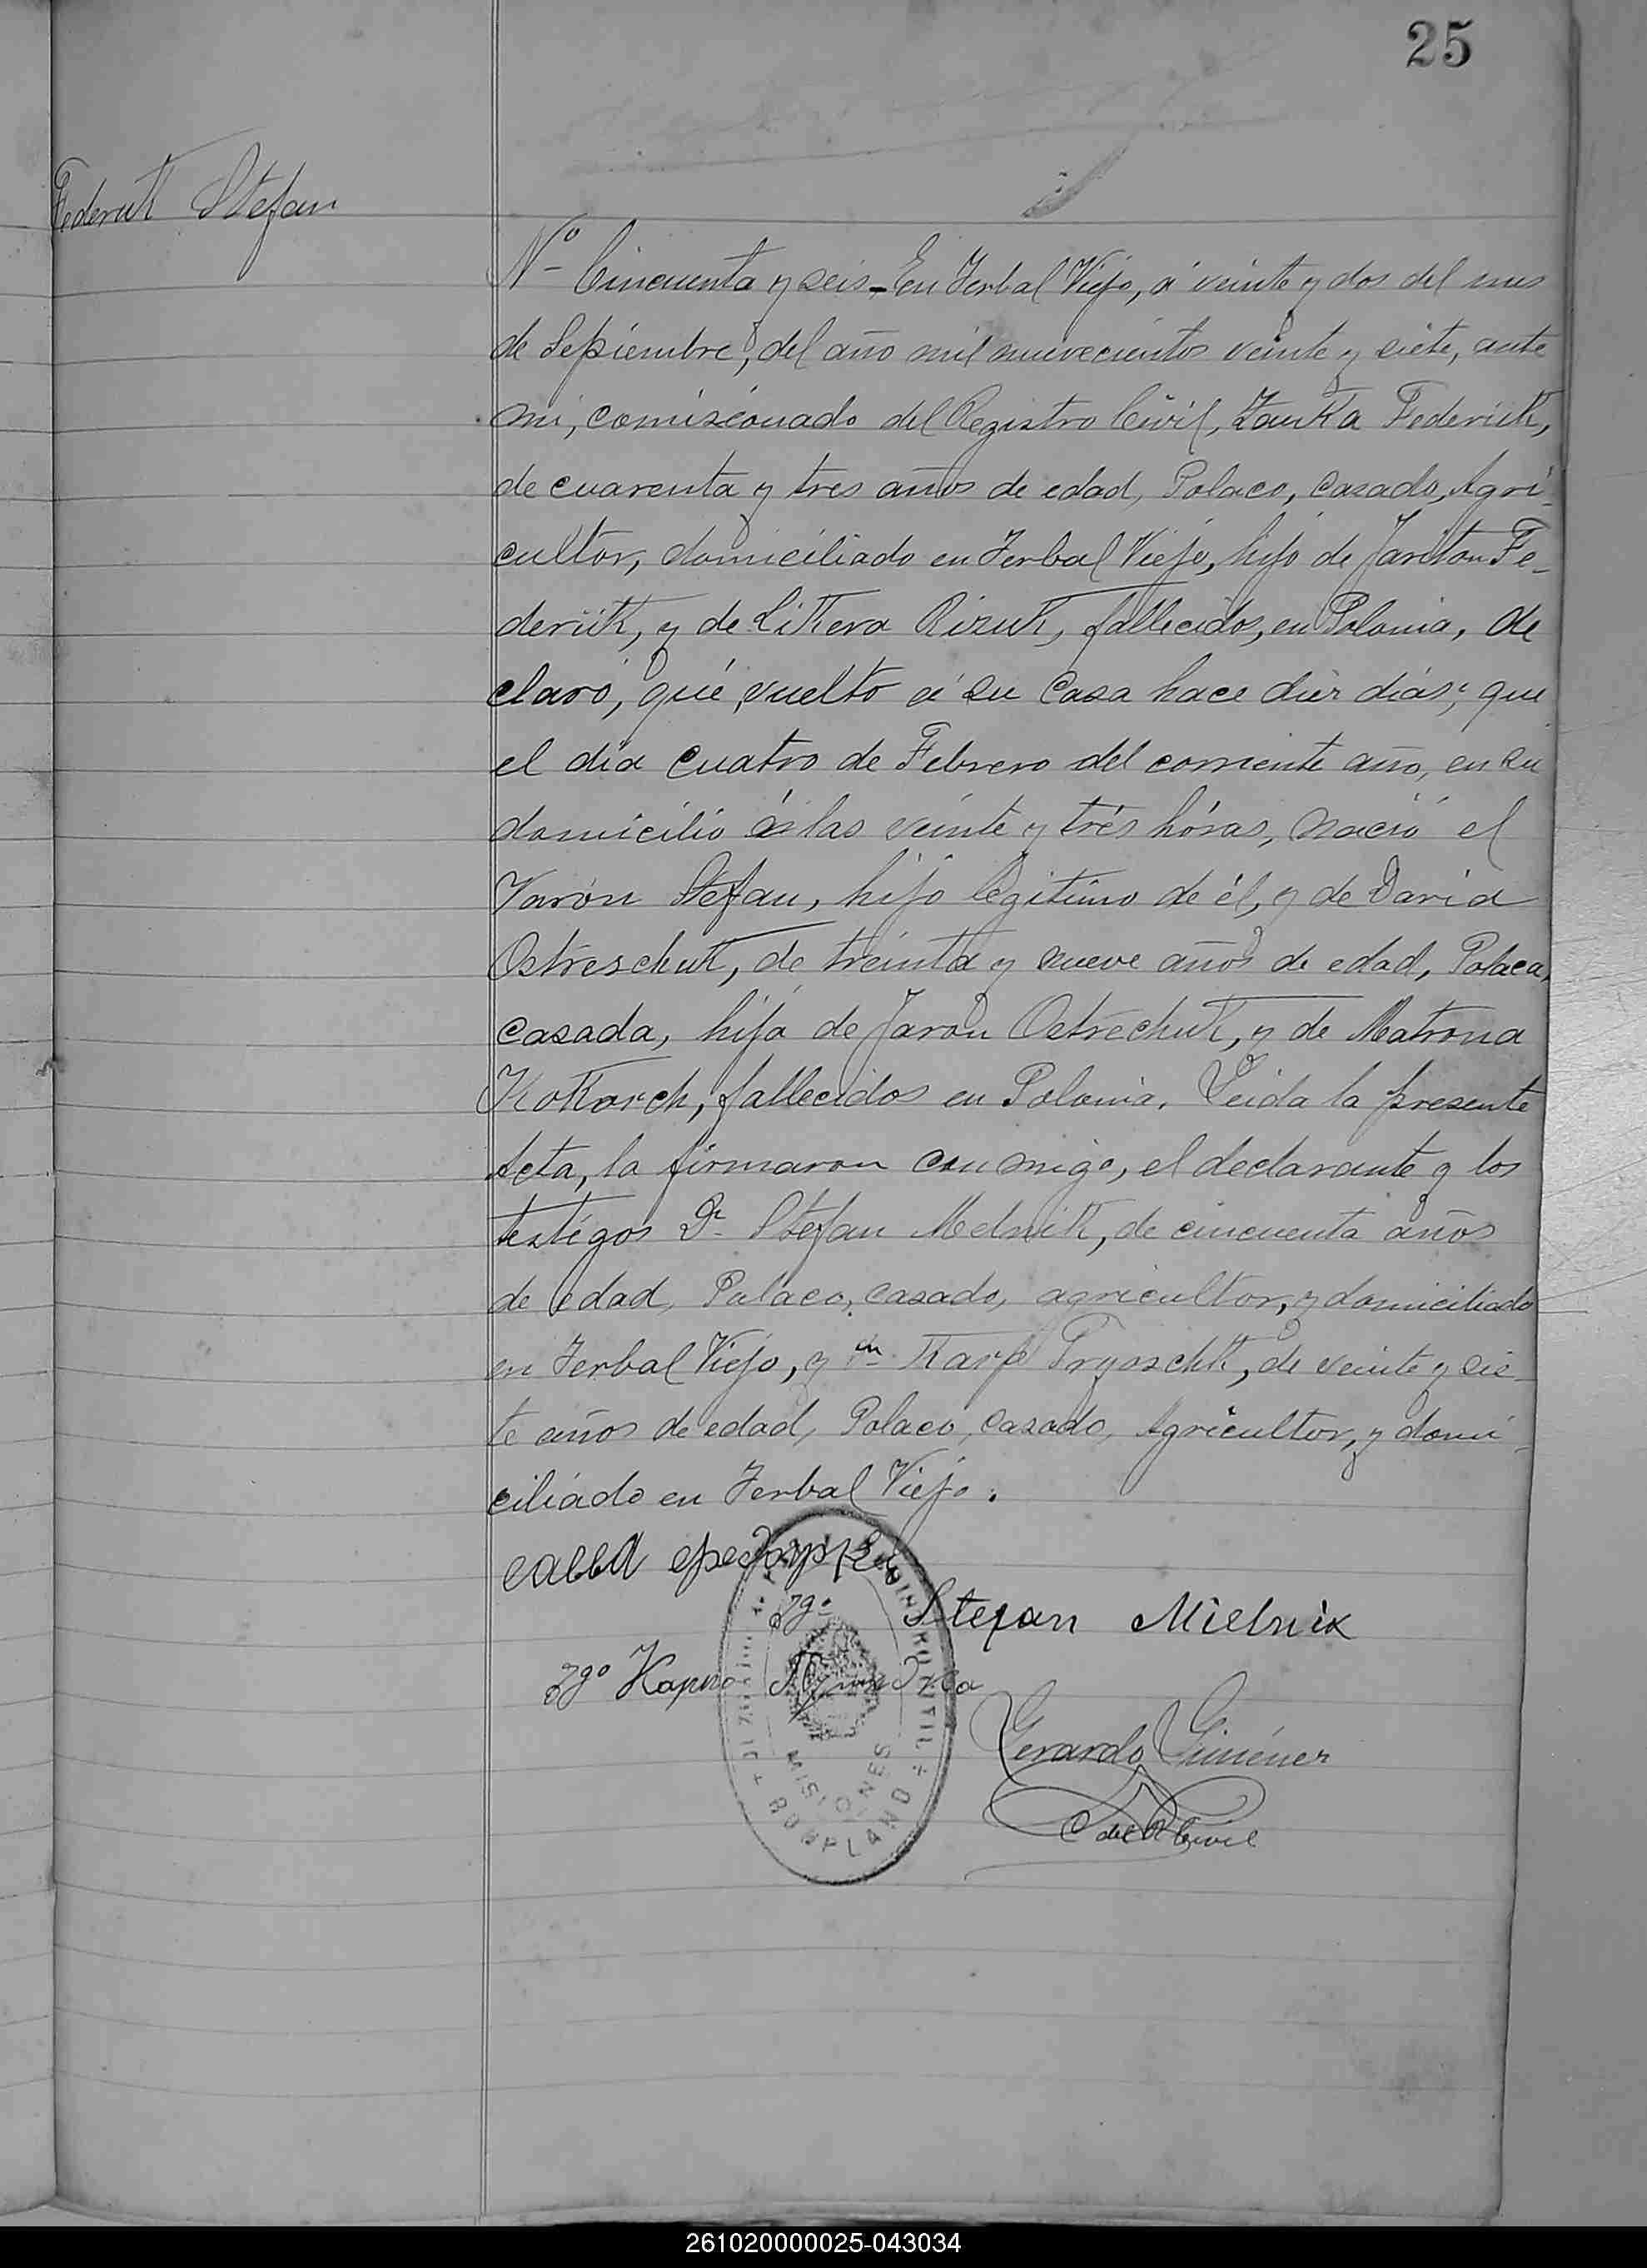 25
Federuk Stefan
Nº Cincuenta y seis - En Yerbal Viejo, á veinte y dos del mes
de Sepiembre, del año mil nuevecientos veinte y siete, ante
mi, comisionado del Registro Civil, Federiuk,
de cuarenta y tres años de edad, Polaco, casado, Agri-
cultor, domiciliado en Yerbal Viejo, hijo de Jariton Fe-
deriuk, y de Likera Rizuk, fallecidos, en Polonia, de
claró, qué, vuelto á su casa hace diez días, que
el día cuatro de Febrero del corriente año, en su
domicilio á las veinte y trés hóras, nació el
Varón Stefan, hijo legitimo de él, y de Daria
Ostreschuk, de treinta y nueve años de edad, Polaca,
casada, hija de Jaron Ostrechuk, y de Matrona
Kokorch, fallecidos en Polonia. Leida la presente
Acta, la firmaron conmigo, el declarante y los
testigos Dn Stefan Melnik, de cincuenta años
de edad, Polaco, casado, agricultor, y domiciliado
en Yerbal Viejo, y Dn Karp de veinte y sie-
te años de edad, Polaco, casado, Agricultor, y domi-
ciliádo en Yerbal Viejo.
савва
Tgo Stefan Mielnik
Tgo Карпо
Gerardo Giménez
C del R Civil
MISIONES
BONPLAND
261020000025-043034